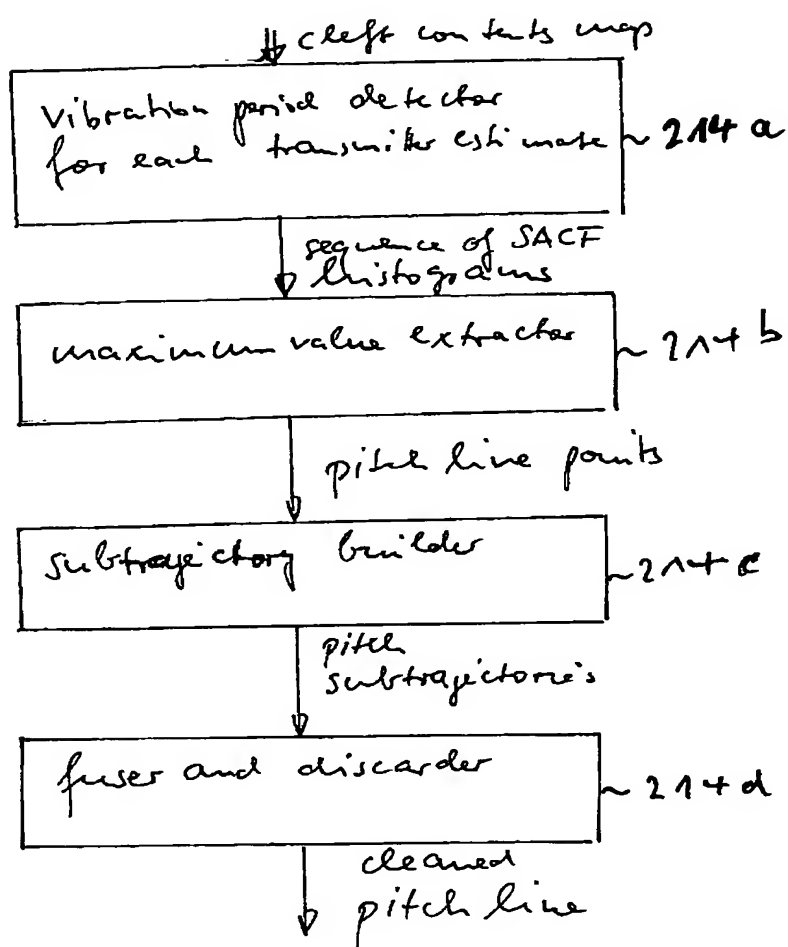 cleft contents map
vibration period detector
for each transmitter estimate ~ 214 a
sequence of SACF
histograms
maximum value extractor ~ 214 b
pitch line points
subtrajectory builder ~ 214 c
pitch
subtrajectories
fuser and discarder ~ 214 d
cleaned
pitch line